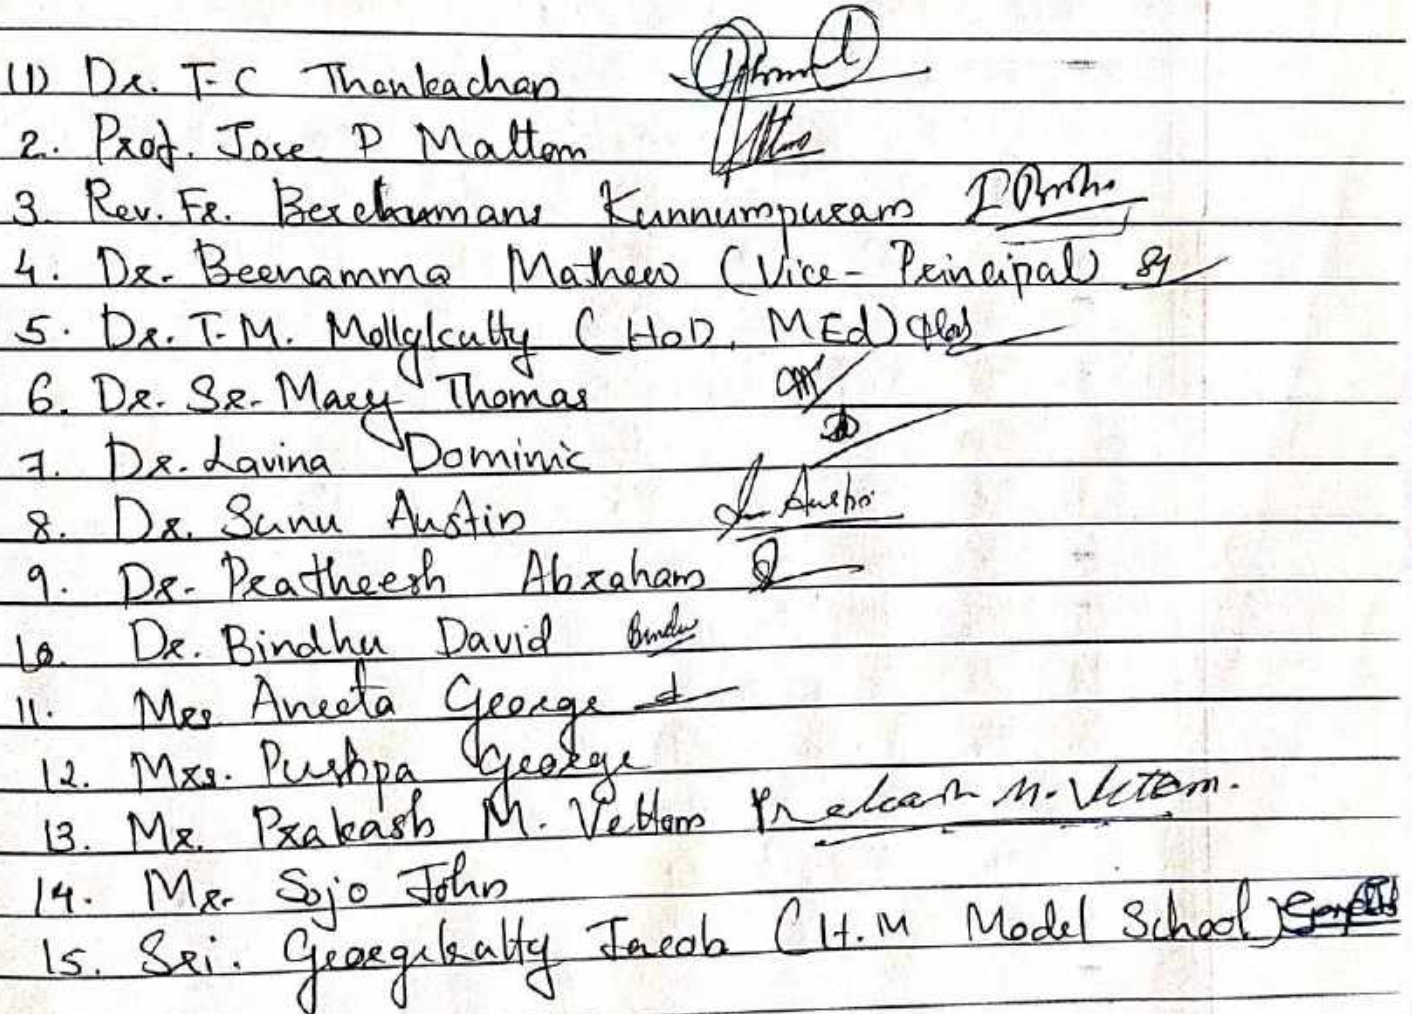 (1) Dr. T-C Thankachan
2. Prof. Jose P Mattom
3. Rev. Fr. Berchumans Kunnumpuram
4. Dr. Beenamma Mathew (Vice-Principal)
5. Dr. T.M. Mollykutty (HOD, MEd)
6. Dr. Sr. Mary Thomas
7. Dr. Lavina Dominic
8. Dr. Sunu Austin Austin
9. Dr. Pratheesh Abraham
10. Dr. Bindhu David Bindu
11. Mrs Aneeta George
12. Mrs. Pushpa George
13. Mr. Prakash M. Vettom Prakash M. Vettom.
14. Mr. Sojo John
15. Sri. Georgekutty Jacob (H.M Model School)